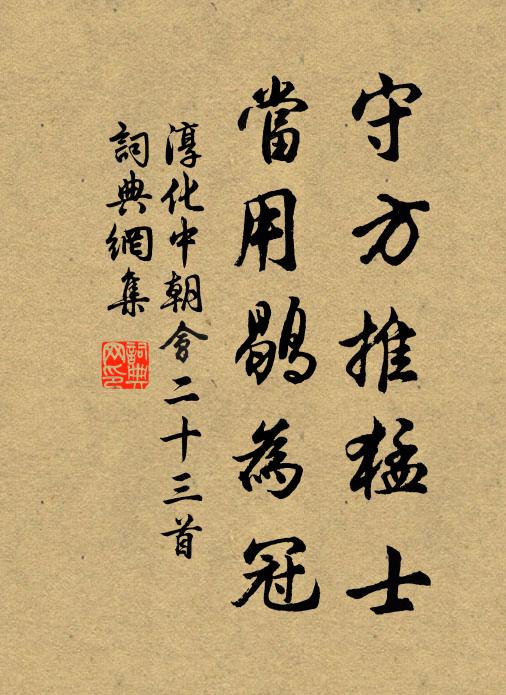 守方推猛士
當用鶡為冠
淳化中朝會二十三首
詞典網集
詞典網印